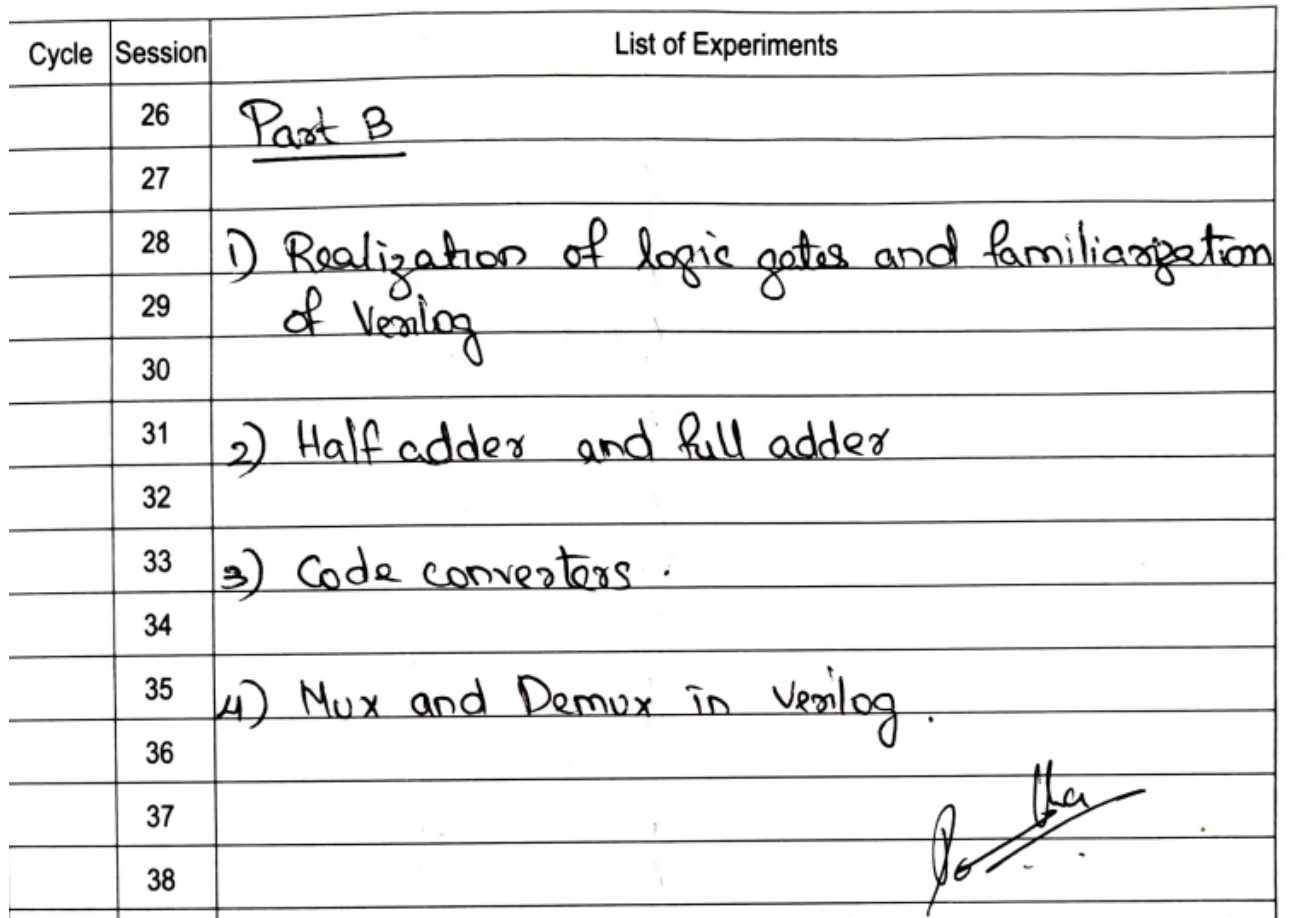 Cycle Session List of Experiments
26 Part B
27
28 1) Realization of logic gates and familiarization
29 of Verilog
30
31 2) Half adder and full adder
32
33 3) Code converters.
34
35 4) Mux and Demux in Verilog.
36
37
38